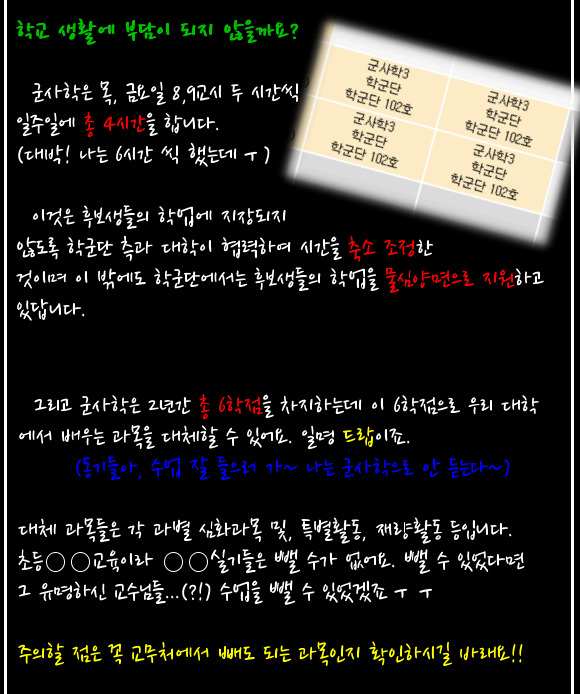 학교 생활에 부담이 되지 않을까요?
군사학3
학군단
학군단 102호
군사학3
학군단
학군단 102호
군사학3
학군단
학군단 102호
군사학3
학군단
학군단 102호
군사학은 목, 금요일 8,9교시 두 시간씩
일주일에 총 4시간을 합니다.
(대박! 나는 6시간 씩 했는데 ㅜ)
이것은 후보생들의 학업에 지장되지
않도록 학군단 측과 대학이 협력하여 시간을 축소 조정한
것이며 이 밖에도 학군단에서는 후보생들의 학업을 물심양면으로 지원하고
있답니다.
그리고 군사학은 2년간 총 6학점을 차지하는데 이 6학점으로 우리 대학
에서 배우는 과목을 대체할 수 있어요. 일명 드랍이죠.
(동기들아, 수업 잘 들으러 가~ 나는 군사학으로 안 듣는다~)
대체 과목들은 각 과별 심화과목 및, 특별활동, 재량활동 등입니다.
초등○○교육이라 ○○실기들은 뺄 수가 없어요. 뺄 수 있었다면
그 유명하신 교수님들...(?!) 수업을 뺄 수 있었겠죠 ㅜ ㅜ
주의할 점은 꼭 교무처에서 빼도 되는 과목인지 확인하시길 바래요!!